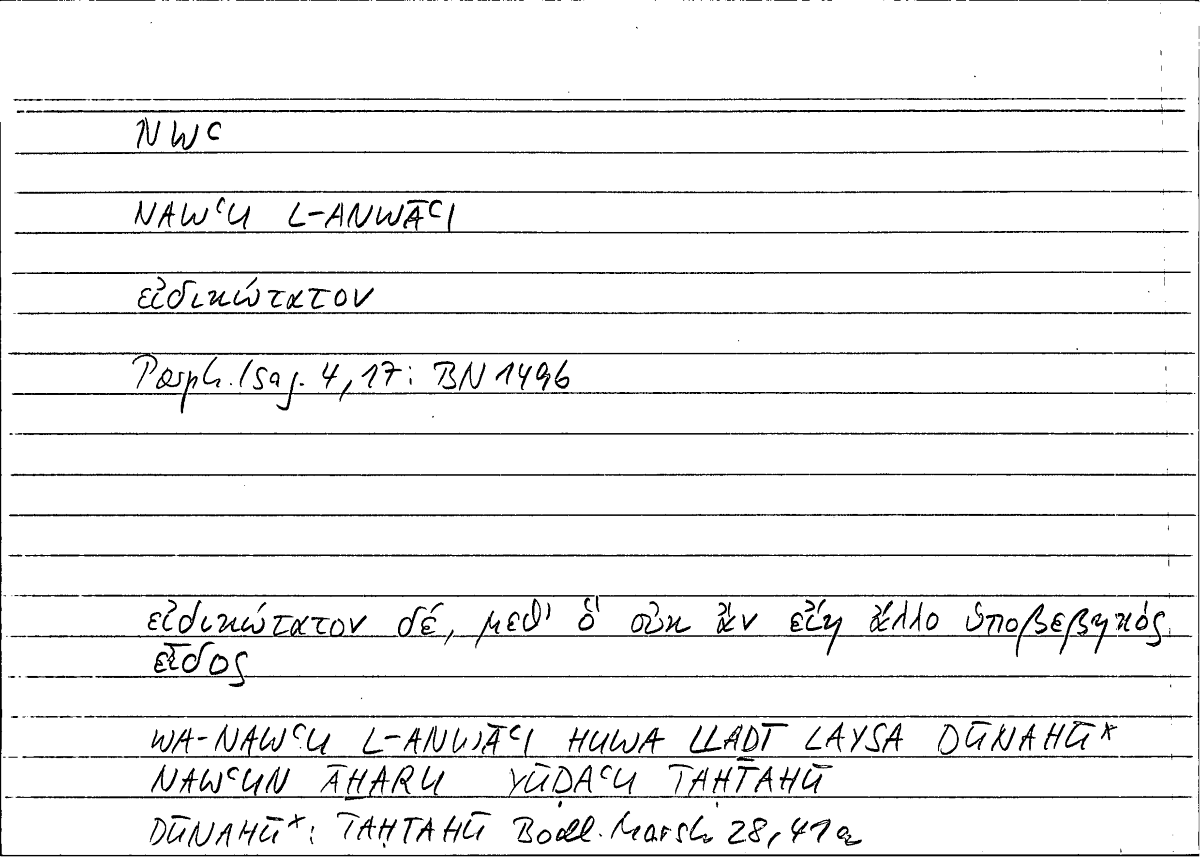 NWʿ
NAWʿU L-ANWĀʿI
εἰδικώτατον
Porph. Isag. 4,17: BN 1496
εἰδικώτατον δέ, μεθ' ὃ οὐκ ἂν εἴη ἄλλο ὑποβεβηκός
εἶδος
WA-NAWʿU L-ANWĀʿI HUWA LLAḎĪ LAYSA DŪNAHŪ*
NAWʿUN ĀḪARU YŪḌAʿU TAḤTAHŪ
DŪNAHŪ*: TAḤTAHŪ Bodl. Marsh. 28, 41a